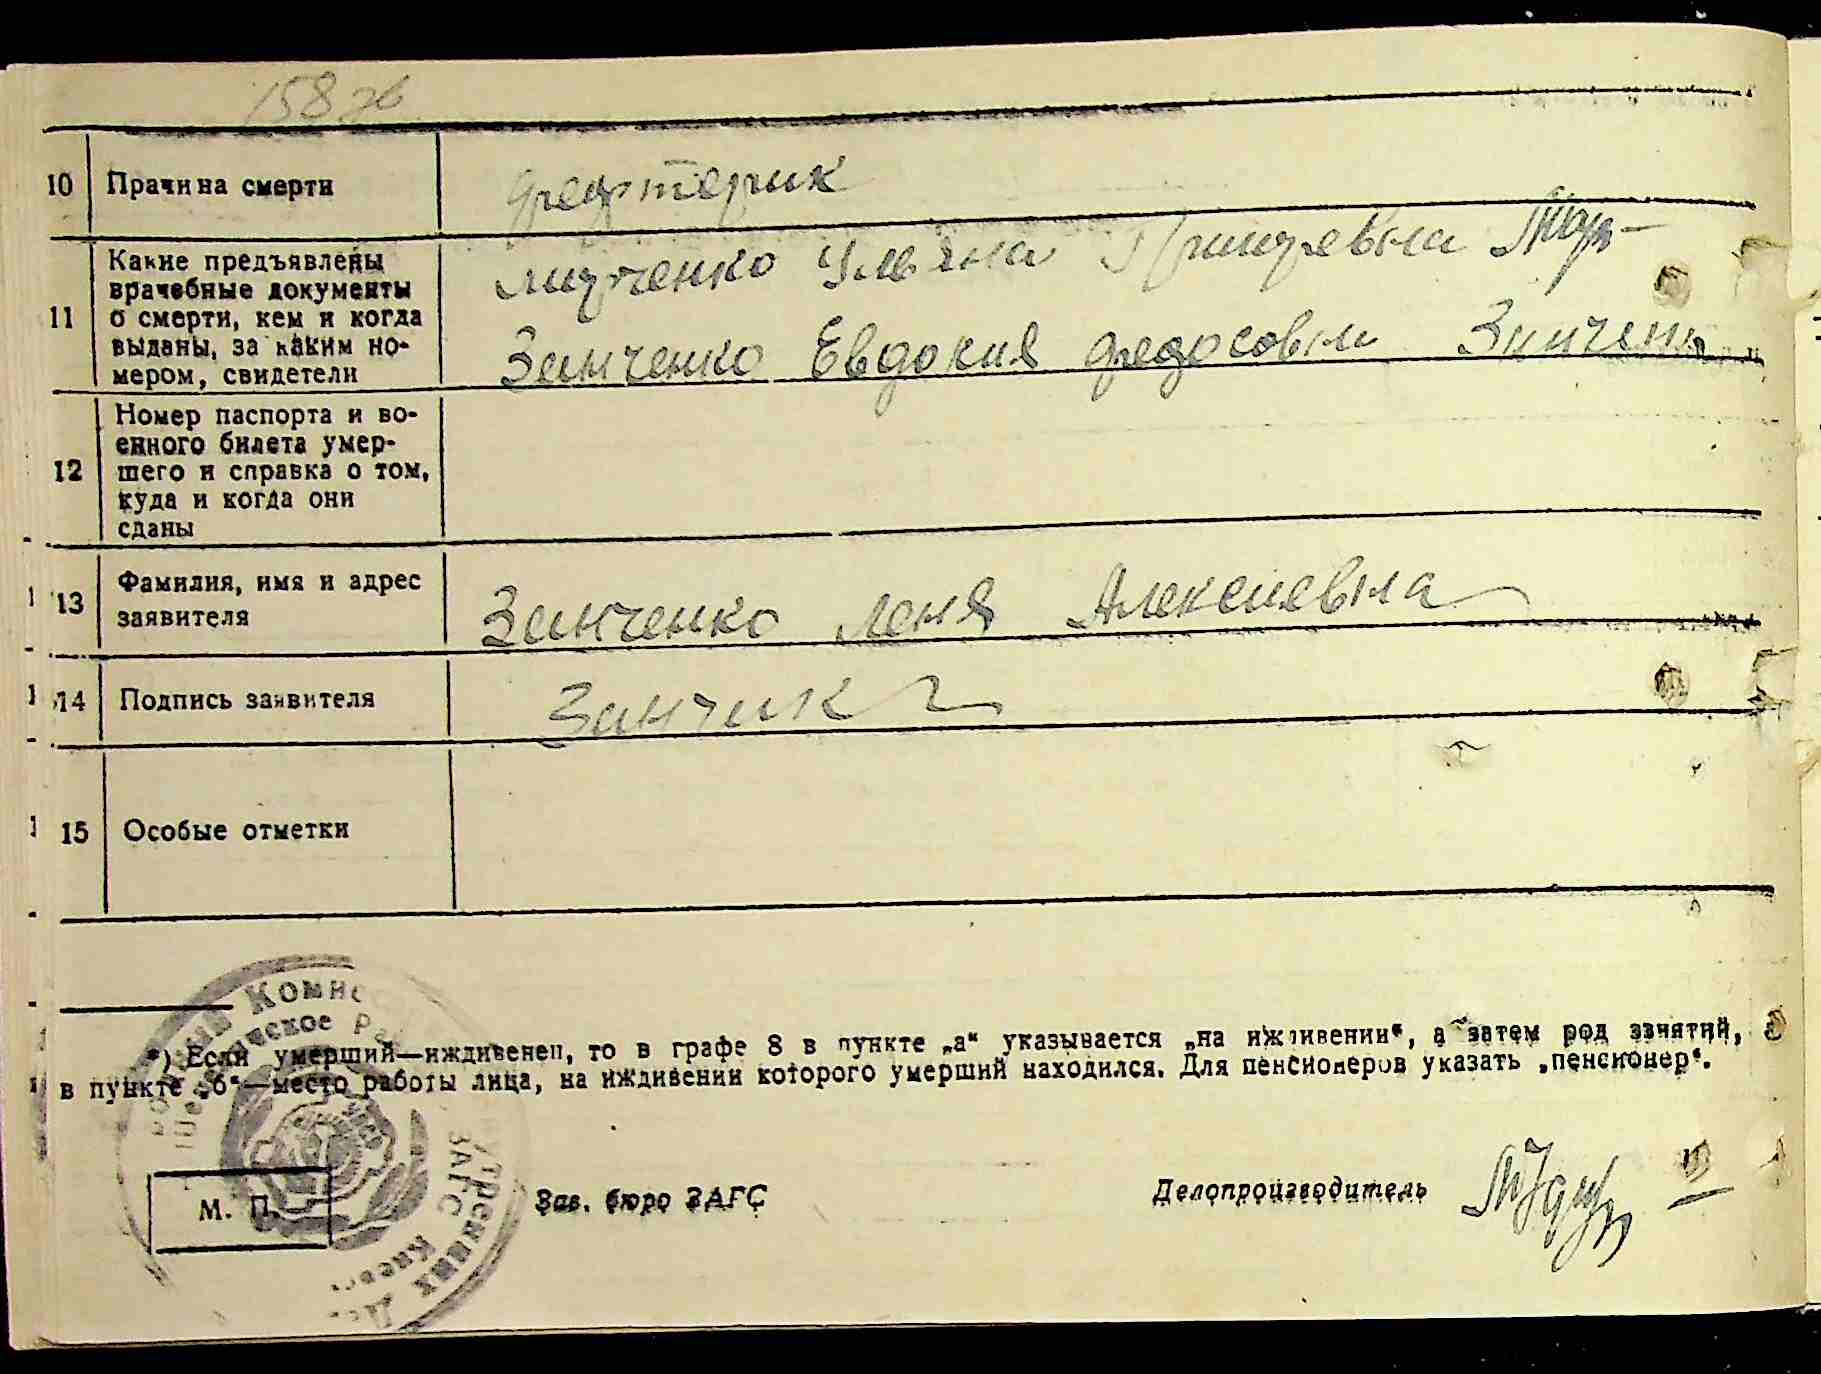 158
10 Причина смерти
11 Какие предъявлены
врачебные документы
о смерти, кем и когда
выданы, за каким но-
мером, свидетели
Ульяна
Зинченко Евдокия Федосовна Зинченко
12 Номер паспорта и во-
енного билета умер-
шего и справка о том,
куда и когда они
сданы
13 Фамилия, имя и адрес
заявителя
Зинченко Алексиевна
14 Подпись заявителя
15 Особые отметки
*) Если умерший—иждивенец, то в графе 8 в пункте „а“ указывается „на иждивении“, а затем род занятий, а
в пункте „б“—место работы лица, на иждивении которого умерший находился. Для пенсионеров указать „пенсионер“.
М. П.
Зав. бюро ЗАГС
Делопроизводитель
ЗАГС